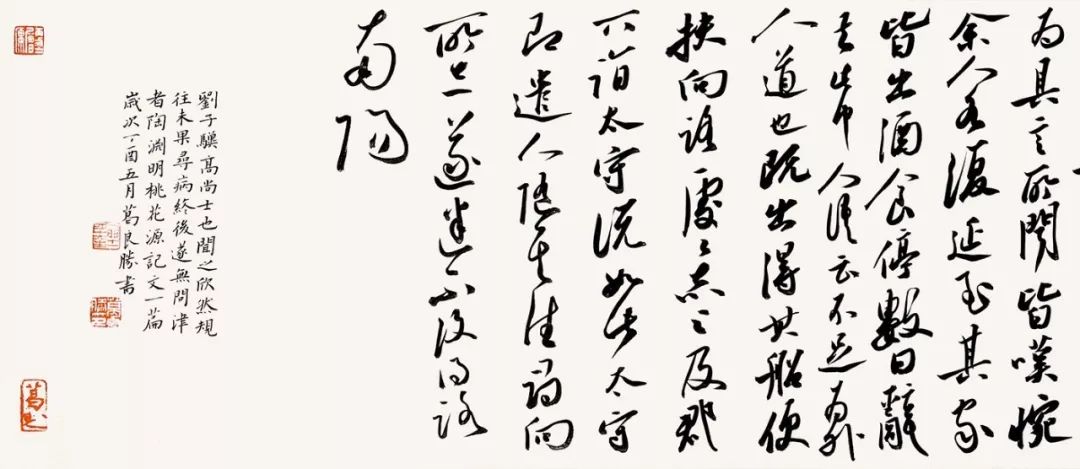 為具言所聞皆嘆惋
余人各復延至其家
皆出酒食停數日辭
去此中人語云不足為外
人道也既出得其船便
扶向路處〻志之及郡
下詣太守說如此太守
即遣人隨其往尋向
所志遂迷不復得路
南陽
劉子驥高尚士也聞之欣然規
往未果尋病終後遂無問津
者陶淵明桃花源記文一篇
歲次丁酉五月葛良勝書